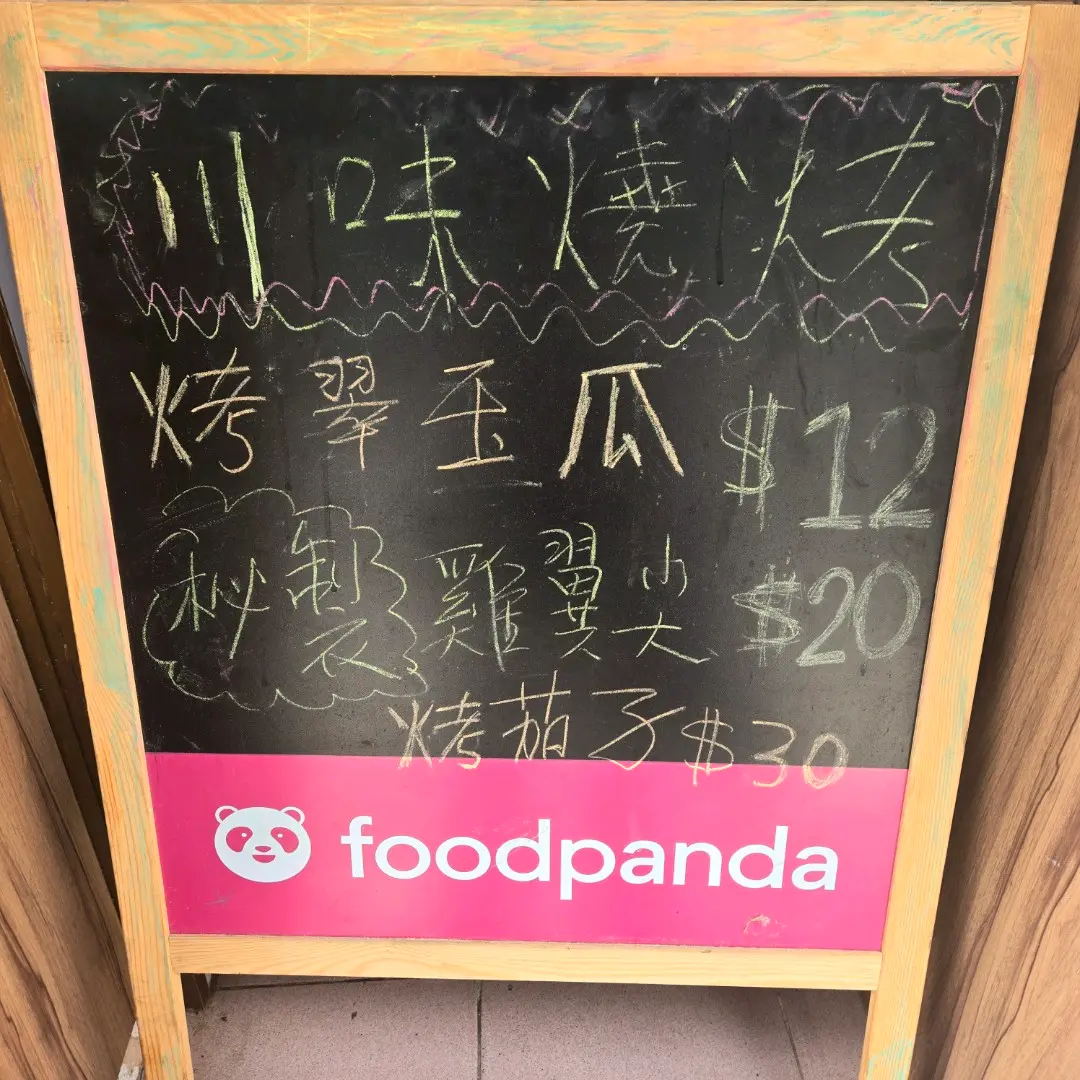 川味燒烤
烤翠玉瓜 $12
秘製雞翼尖 $20
烤茄子 $30
foodpanda